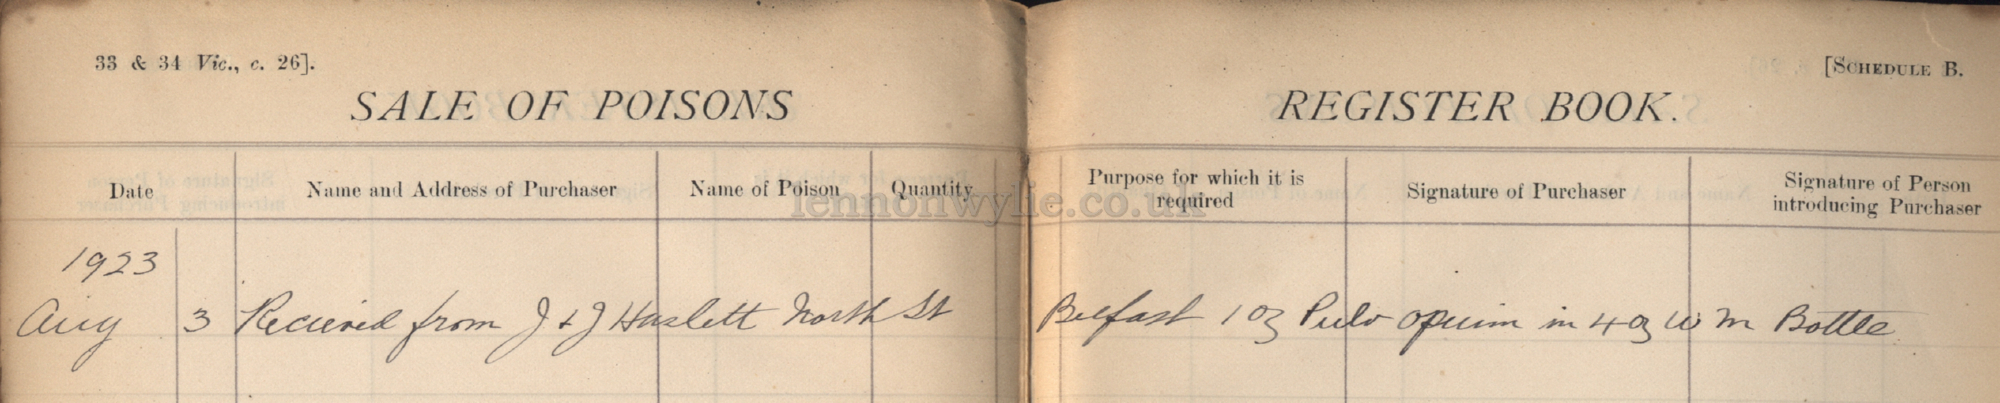 33 & 34 Vic., c. 26].
[SCHEDULE B.
SALE OF POISONS
REGISTER BOOK.
Date
Name and Address of Purchaser
Name of Poison
Quantity
Purpose for which it is
required
Signature of Purchaser
Signature of Person
introducing Purchaser
lennonwylie.co.uk
1923
Aug 3 Recieved from J & J Haslett North St Belfast 1 oz Pulv opium in 4 oz W M Bottle